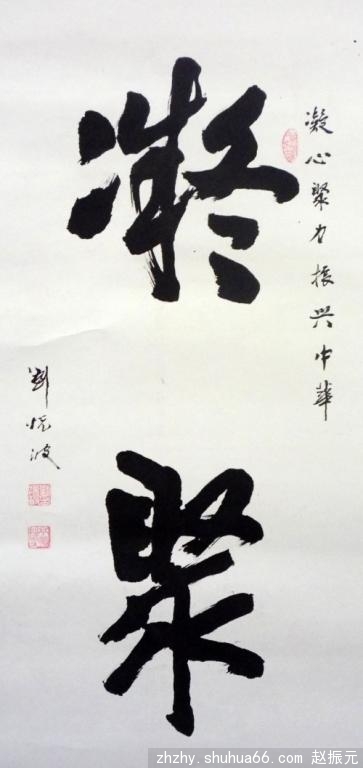 凝心聚力振兴中华
凝
聚
zhzhy.shuhua66.com 赵振元